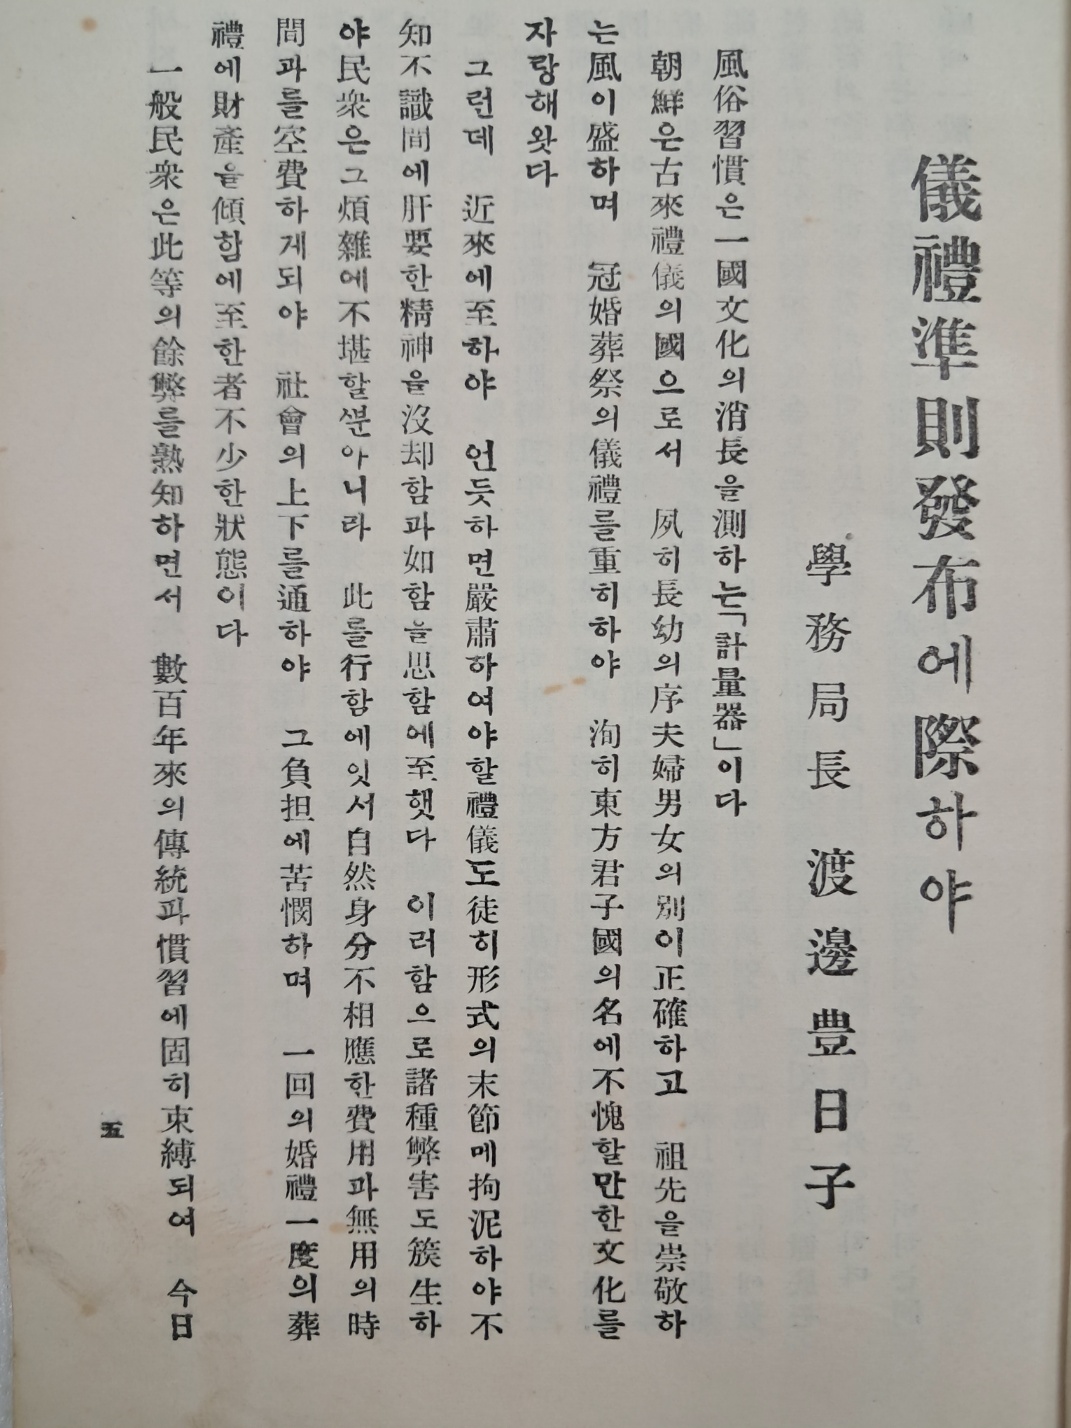 儀禮準則發布에際하야
學務局長 渡邊豊日子
風俗習慣은一國文化의消長을測하는「計量器」이다
朝鮮은古來禮儀의國으로서 夙히長幼의序夫婦男女의別이正確하고 祖先을崇敬하
는風이盛하며 冠婚葬祭의儀禮를重히하야 洵히東方君子國의名에不愧할만한文化를
자랑해왓다
그런데 近來에至하야 언듯하면嚴肅하여야할禮儀도徒히形式의末節메拘泥하야不
知不識間에肝要한精神을沒却함과如함을思함에至햇다 이러함으로諸種弊害도簇生하
야民衆은그煩雜에不堪할뿐아니라 此를行함에잇서自然身分不相應한費用과無用의時
間과를空費하게되야 社會의上下를通하야 그負担에苦憫하며 一回의婚禮一度의葬
禮에財產을傾함에至한者不少한狀態이다
一般民衆은此等의餘弊를熟知하면서 數百年來의傳統과慣習에固히束縛되여 今日
五